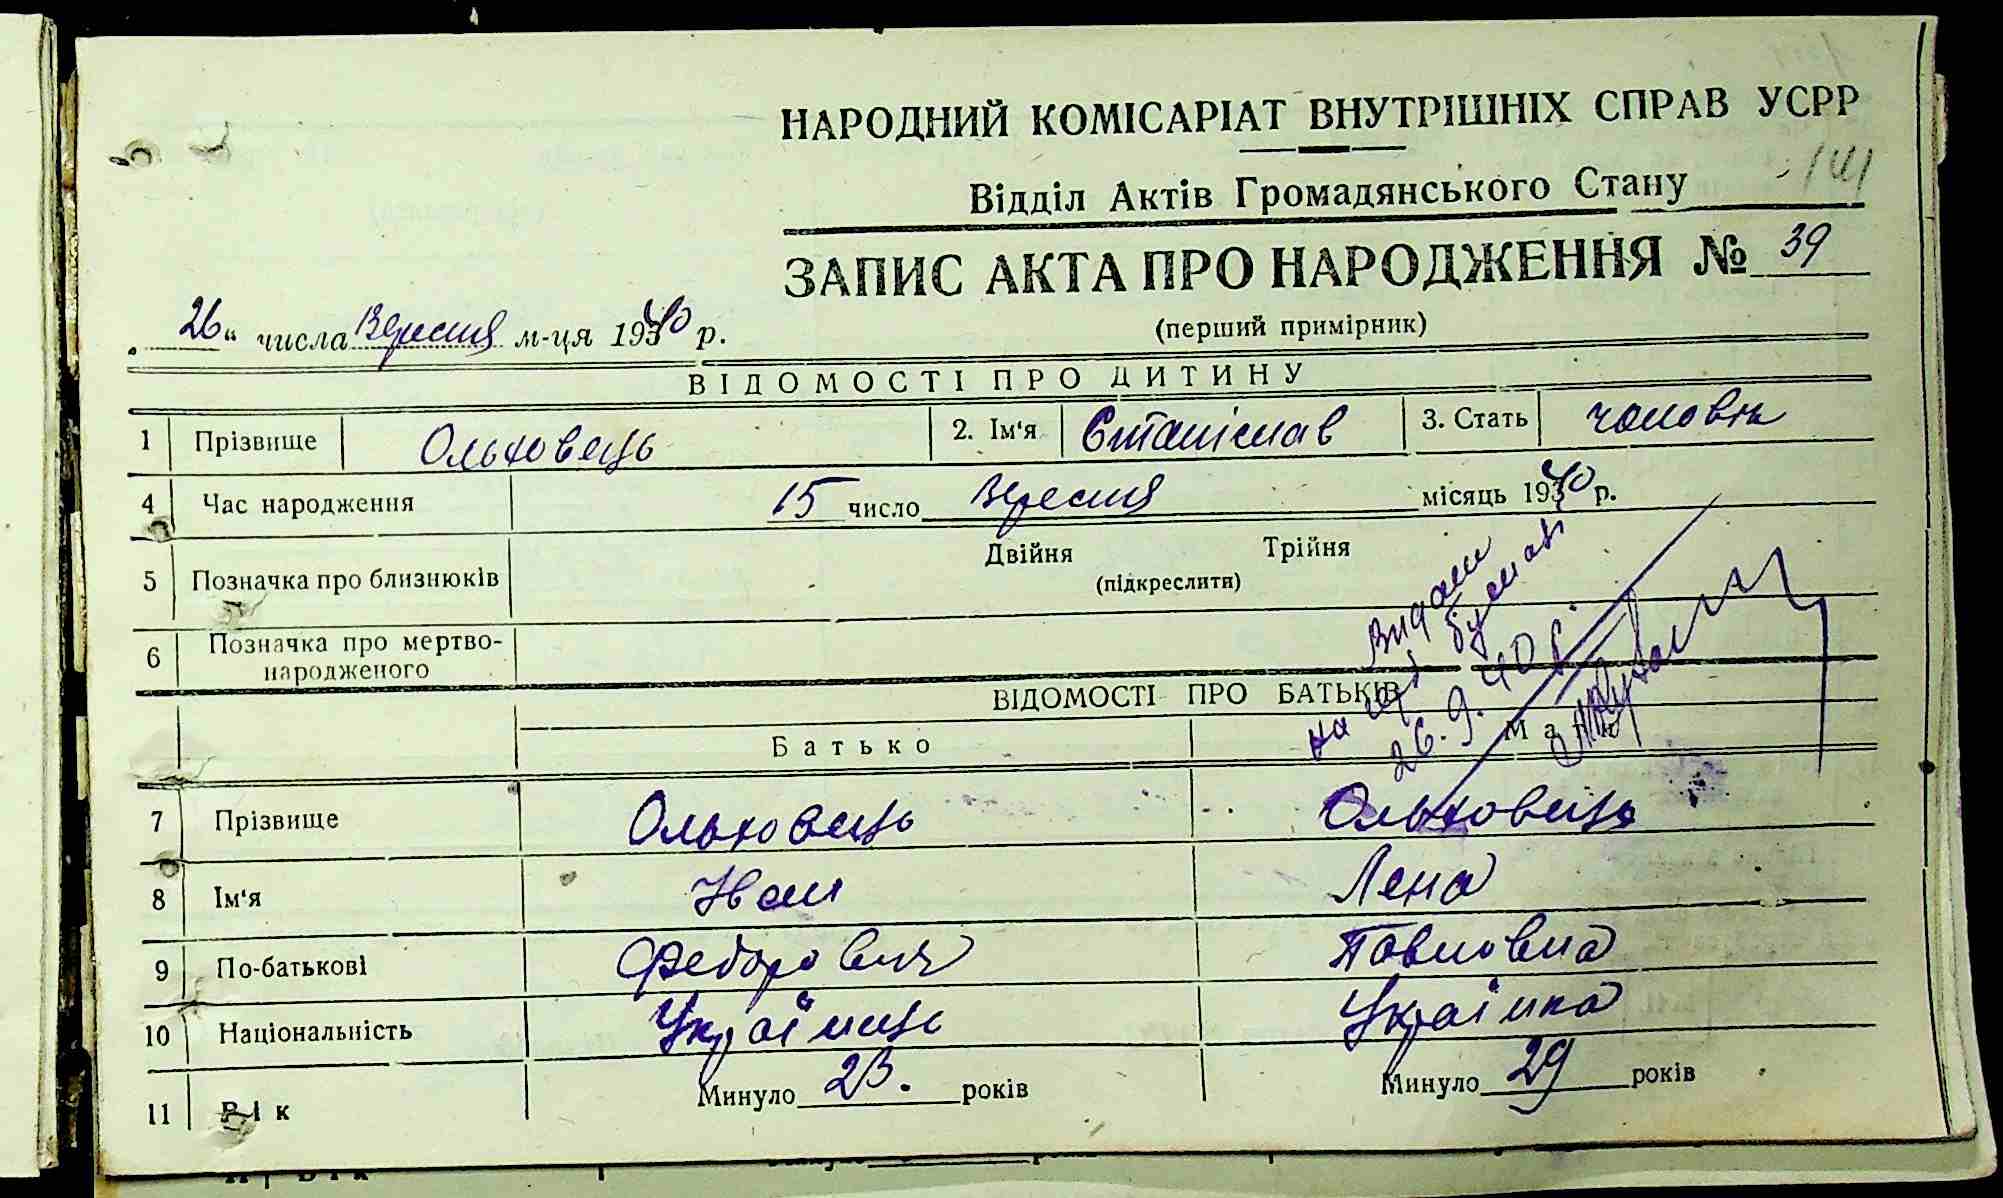 НАРОДНИЙ КОМІСАРІАТ ВНУТРІШНІХ СПРАВ УСРР
Відділ Актів Громадянського Стану
141
ЗАПИС АКТА ПРО НАРОДЖЕННЯ № 39
(перший примірник)
26 " числа Вересня м-ця 1940 р.
ВІДОМОСТІ ПРО ДИТИНУ
1 Прізвище Ольховець 2. Ім'я Станіслав 3. Стать чоловік
4 Час народження 15 число Вересня місяць 1940 р.
5 Позначка про близнюків Двійня Трійня
(підкреслити)
6 Позначка про мертво-
народженого
Видани
на
26.9.40 р.
ВІДОМОСТІ ПРО БАТЬКІВ
Батько Мати
7 Прізвище Ольховець Ольховець
8 Ім'я Иван Лена
9 По-батькові Федорович Павловна
10 Національність Українець Українка
11 Вік Минуло 23. років Минуло 29 років